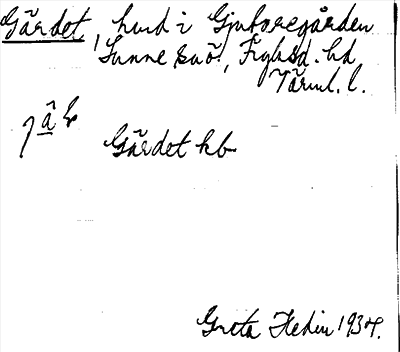 Gärdet, hmd i Gjutaregården
Sunne sn, Fryksd. hd
Värml. l.
Gärdet kb
Greta Hedin 1934.